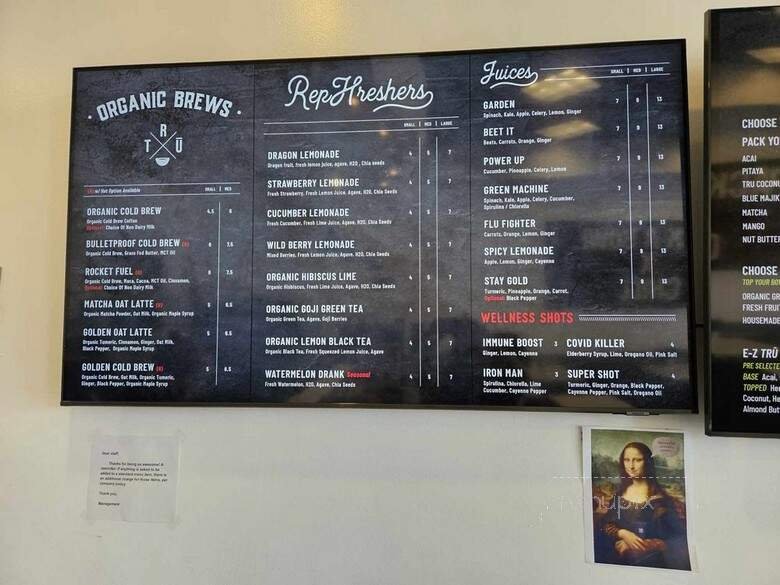 ORGANIC BREWS
T R Ū
Hot Option Available
SMALL | MED
ORGANIC COLD BREW 4.5 6
Organic Cold Brew Coffee
Optional: Choice Of Non Dairy Milk
BULLETPROOF COLD BREW (H) 6 7.5
Organic Cold Brew, Grass Fed Butter, MCT Oil
ROCKET FUEL (H) 6 7.5
Organic Cold Brew, Maca, Cacao, MCT Oil, Cinnamon,
Optional: Choice Of Non Dairy Milk
MATCHA OAT LATTE (H) 5 6.5
Organic Matcha Powder, Oat Milk, Organic Maple Syrup
GOLDEN OAT LATTE 5 6.5
Organic Turmeric, Cinnamon, Ginger, Oat Milk,
Black Pepper, Organic Maple Syrup
GOLDEN COLD BREW (H) 5 6.5
Organic Cold Brew, Oat Milk, Organic Tumeric,
Ginger, Black Pepper, Organic Maple Syrup
RepHreshers
SMALL | MED | LARGE
DRAGON LEMONADE 4 5 7
Dragon fruit, fresh lemon juice, agave, H2O, Chia seeds
STRAWBERRY LEMONADE 4 5 7
Fresh Strawberry, Fresh Lemon Juice, Agave, H2O, Chia Seeds
CUCUMBER LEMONADE 4 5 7
Fresh Cucumber, Fresh Lime Juice, Agave, H2O, Chia Seeds
WILD BERRY LEMONADE 4 5 7
Mixed Berries, Fresh Lemon Juice, Agave, H2O, Chia Seeds
ORGANIC HIBISCUS LIME 4 5 7
Organic Hibiscus, Fresh Lime Juice, Agave, H2O, Chia Seeds
ORGANIC GOJI GREEN TEA 4 5 7
Organic Green Tea, Agave, Goji Berries
ORGANIC LEMON BLACK TEA 4 5 7
Organic Black Tea, Fresh Squeezed Lemon Juice, Agave
WATERMELON DRANK Seasonal 4 5 7
Fresh Watermelon, H2O, Agave, Chia Seeds
Juices
SMALL | MED | LARGE
GARDEN 7 9 13
Spinach, Kale, Apple, Celery, Lemon, Ginger
BEET IT 7 9 13
Beets, Carrots, Orange, Ginger
POWER UP 7 9 13
Cucumber, Pineapple, Celery, Lemon
GREEN MACHINE 7 9 13
Spinach, Kale, Apple, Celery, Cucumber,
Spirulina / Chlorella
FLU FIGHTER 7 9 13
Carrots, Orange, Lemon, Ginger
SPICY LEMONADE 7 9 13
Apple, Lemon, Ginger, Cayenne
STAY GOLD 7 9 13
Turmeric, Pineapple, Orange, Carrot,
Optional: Black Pepper
WELLNESS SHOTS
IMMUNE BOOST 3
Ginger, Lemon, Cayenna
COVID KILLER 4
Elderberry Syrup, Lime, Oregano Oil, Pink Salt
IRON MAN 3
Spirulina, Chlorella, Lime
Cucumber, Cayenne Pepper
SUPER SHOT 4
Turmeric, Ginger, Orange, Black Pepper,
Cayenne Pepper, Pink Salt, Oregano Oil
CHOOSE
PACK YO
ACAI
PITAYA
TRU COCONU
BLUE MAJIK
MATCHA
MANGO
NUT BUTTER
CHOOSE
TOP YOUR BOW
ORGANIC GR
FRESH FRUIT
HOUSEMADE
E-Z TRŪ
PRE SELECTE
BASE Acai,
TOPPED Hem
Coconut, He
Almond Butt
Dear staff,
Thanks for being so awesome! A
reminder if anything is asked to be
added to a standard menu item, there is
an additional charge for those items, per
company policy
Thank you,
Management
menupix